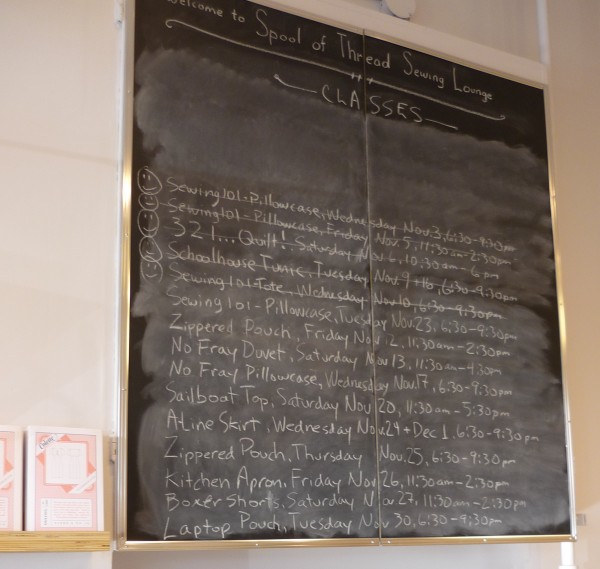 Welcome to Spool of Thread Sewing Lounge
CLASSES
Sewing 101 - Pillowcase, Wednesday Nov. 3, 6:30 - 9:30pm
Sewing 101 - Pillowcase, Friday Nov. 5, 11:30am - 2:30pm
3 2 1... Quilt!, Saturday Nov 6, 10:30am - 6pm
Schoolhouse Tunic, Tuesday Nov. 9 + 16, 6:30 - 9:30pm
Sewing 101 - Tote, Wednesday Nov 10, 6:30 - 9:30pm
Sewing 101 - Pillowcase, Tuesday Nov 23, 6:30 - 9:30pm
Zippered Pouch, Friday Nov 12, 11:30am - 2:30pm
No Fray Duvet, Saturday Nov 13, 11:30am - 4:30pm
No Fray Pillowcase, Wednesday Nov. 17, 6:30 - 9:30pm
Sailboat Top, Saturday Nov 20, 11:30am - 5:30pm
A-Line Skirt, Wednesday Nov 24 + Dec 1, 6:30 - 9:30pm
Zippered Pouch, Thursday Nov. 25, 6:30 - 9:30pm
Kitchen Apron, Friday Nov 26, 11:30am - 2:30pm
Boxer Shorts, Saturday Nov 27, 11:30am - 2:30pm
Laptop Pouch, Tuesday Nov 30, 6:30 - 9:30pm